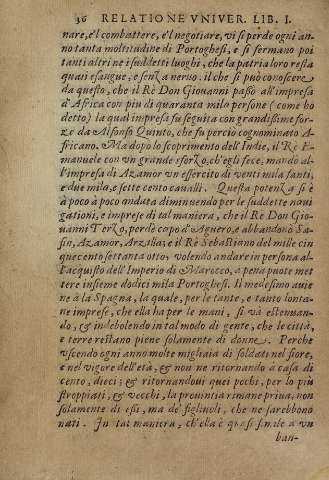 36 RELATIONE VNIVER. LIB. I.
nare, e'l combattere, e'l negotiare, vi si perde ogni an-
no tanta moltitudine di Portoghesi, e si fermano poi
tanti altri ne i suddetti luoghi, che la patria loro resta
quasi esangue, e senza neruo. il che si può conoscere
da questo, che il Rè Don Giouanni passò all'impresa
d'Africa con piu di quaranta mila persone (come hò
detto) la qual impresa fu seguita con grandissime for-
ze da Alfonso Quinto, che fu perciò cognominato A-
fricano. Ma dopo lo scoprimento dell'Indie, il Rè E-
manuele con vn grande sforzo, ch'egli fece, mandò al-
l'impresa di Azamor vn essercito di venti mila fanti,
e due mila, e sette cento caualli. Questa potenza si è
à poco à poco andata diminuendo per le suddette naui
gationi, e imprese di tal maniera, che il Rè Don Gio-
uanni Terzo, perdè capo d'Aguero, e abbandonò Sa-
fin, Azamor, Arzilla; e il Rè Sebastiano del mille cin
que cento settanta otto, volendo andare in persona al-
l'acquisto dell'Imperio di Marocco, a pena puote met
tere insieme dodici mila Portoghesi. Il medesimo auie
ne à la Spagna, la quale, per le tante, e tanto lonta-
ne imprese, che ella ha per le mani, si và estenuan-
do, & indebolendo in tal modo di gente, che le città,
e terre restano piene solamente di donne. Perche
vscendo ogni anno molte migliaia di soldati nel fiore,
e nel vigore dell'età, & non ne ritornando à casa di
cento, dieci; & ritornandoui quei pochi, per lo più
stroppiati, & vecchi, la prouintia rimane priua, non
solamente di essi, ma de' figliuoli, che ne sarebbono
nati. In tal maniera, ch'ella è quasi simile a vn
ban-